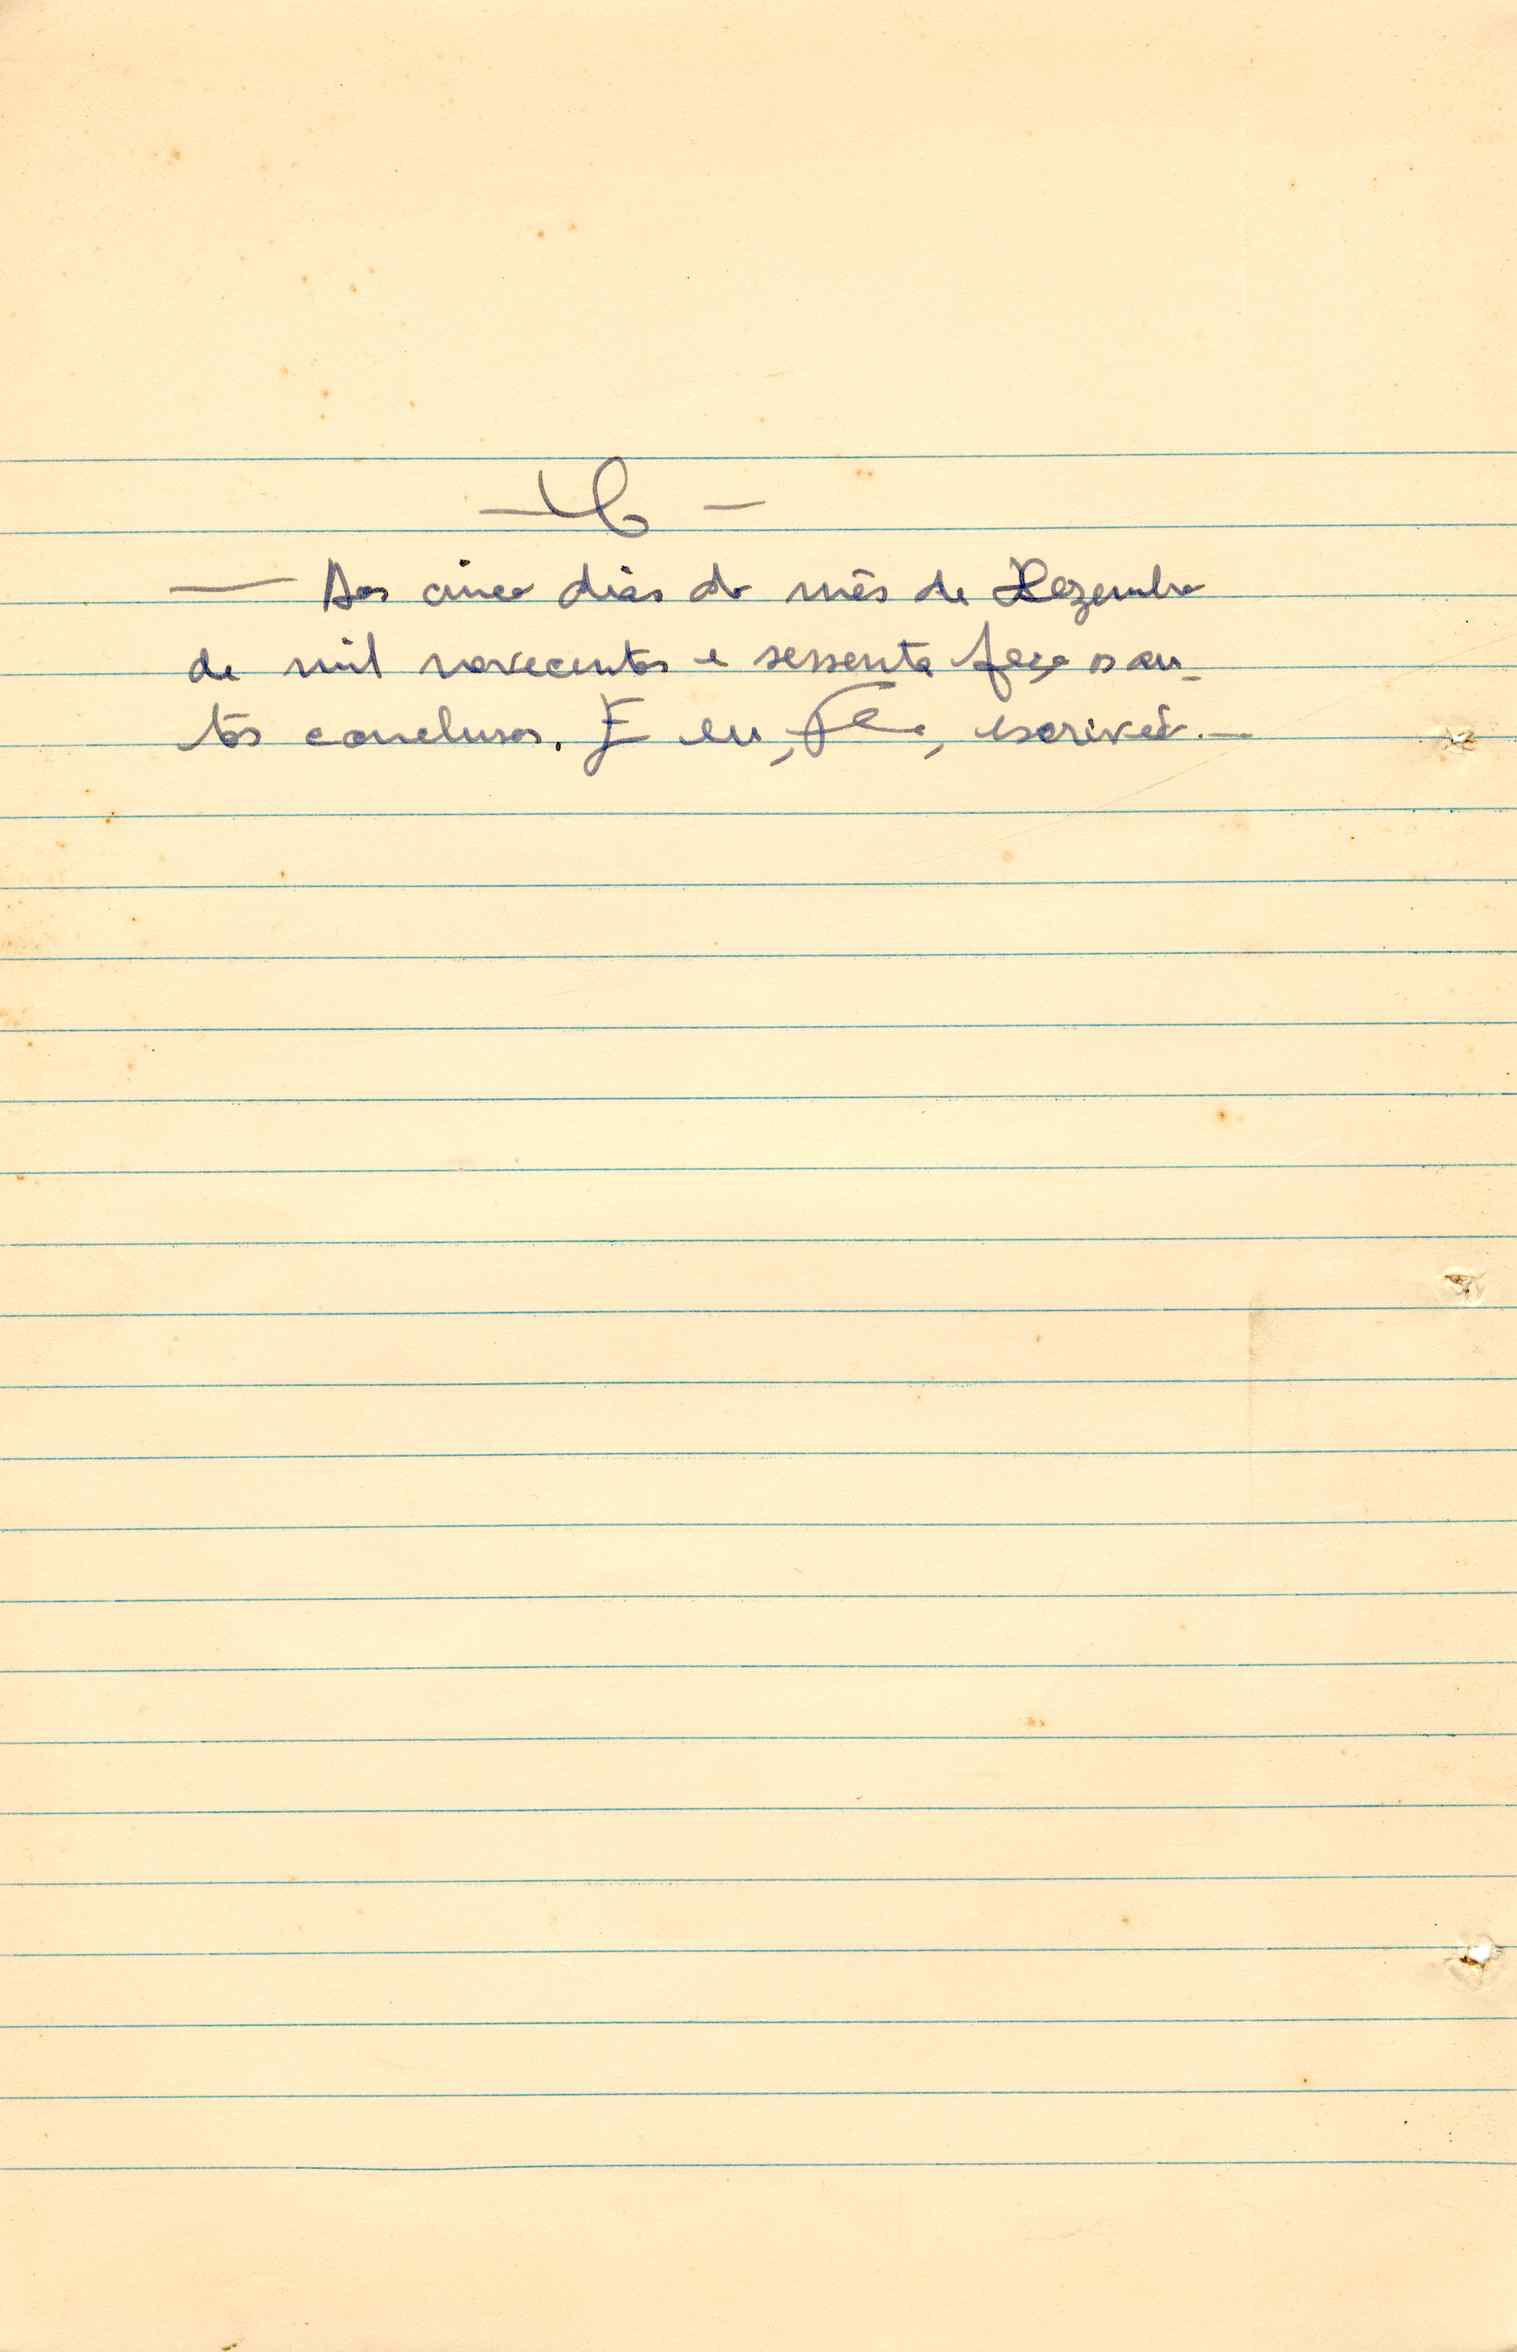 — Aos cinco dias do mês de Dezembro
de mil novecentos e sessenta faço os au-
tos conclusos. E eu, , escrivão. —